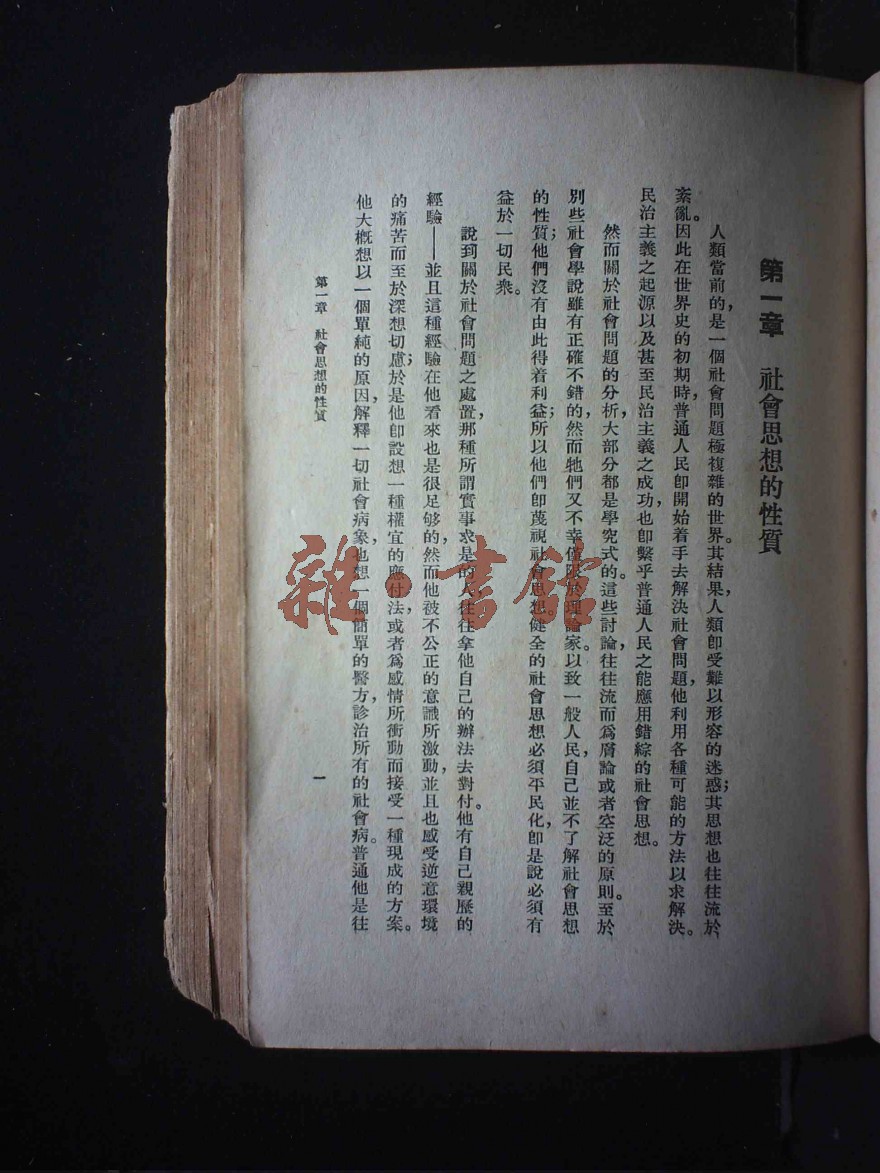 第一章 社會思想的性質
人類當前的,是一個社會問題極複雜的世界。其結果,人類即受難以形容的迷惑;其思想也往往流於
紊亂。因此在世界史的初期時,普通人民即開始着手去解決社會問題,他利用各種可能的方法以求解決。
民治主義之起源以及甚至民治主義之成功,也即繫乎普通人民之能應用錯綜的社會思想。
然而關於社會問題的分析,大部分都是學究式的。這些討論,往往流而爲屑論或者空泛的原則。至於
別些社會學說雖有正確不錯的,然而牠們又不幸僅限於理論家。以致一般人民,自己並不了解社會思想
的性質;他們沒有由此得着利益;所以他們即蔑視社會思想。健全的社會思想必須平民化,即是說必須有
益於一切民衆。
說到關於社會問題之處置,那種所謂實事求是的人往往拿他自己的辦法去對付。他有自己親歷的
經驗——並且這種經驗在他看來也是很足够的,然而他被不公正的意識所激動,並且也感受逆意環境
的痛苦而至於深想切慮;於是他即設想一種權宜的應付法,或者爲感情所衝動而接受一種現成的方案。
他大概想以一個單純的原因,解釋一切社會病象,也想一個簡單的醫方,診治所有的社會病。普通他是往
第一章 社會思想的性質
一
雜·書館